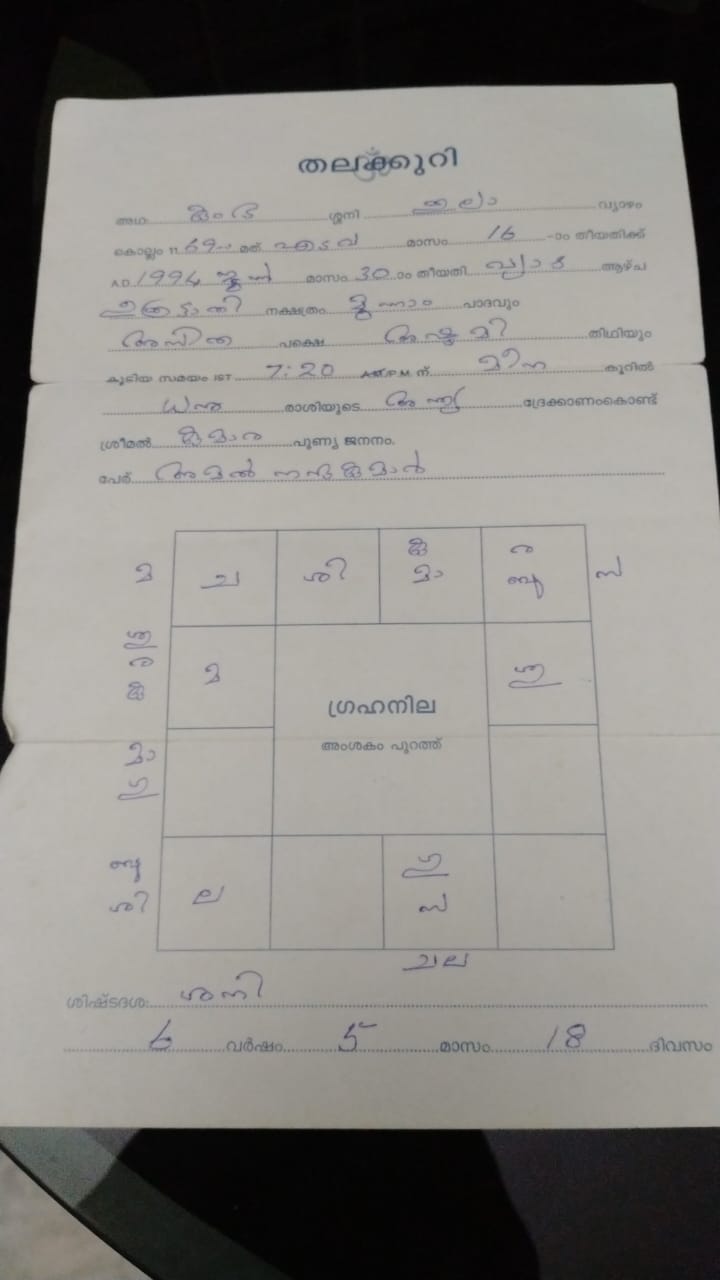 തലക്കുറി
അഥ കുംഭ ശനി തുലാ വ്യാഴം
കൊല്ലം 11 69 ‑ാ മത് എടവ മാസം 16 -ാം തീയതിക്ക്
A.D 1994 ജൂൺ മാസം 30 ാം തീയതി വ്യാഴ ആഴ്ച
ഉത്രട്ടാതി നക്ഷത്രം മൂന്നാം പാദവും
അസിത പക്ഷെ അഷ്ടമി തിഥിയും
കൂടിയ സമയം IST 7:20 P.M ന് മീന കൂറിൽ
ധനു രാശിയുടെ അന്ത്യ ദ്രേക്കാണംകൊണ്ട്
ശ്രീമൽ കുമാര പുണ്യ ജനനം.
പേര് അമൽ നന്ദകുമാർ
മ ച ശി കു മാ ര ബു സ
ശു ര കു മ ഗ്രഹനില ശു
മാ ഗു അംശകം പുറത്ത്
ബു ശി ല ഗു സ
ച ല
ശിഷ്ടദശ: ശനി
6 വർഷം 5 മാസം 18 ദിവസം